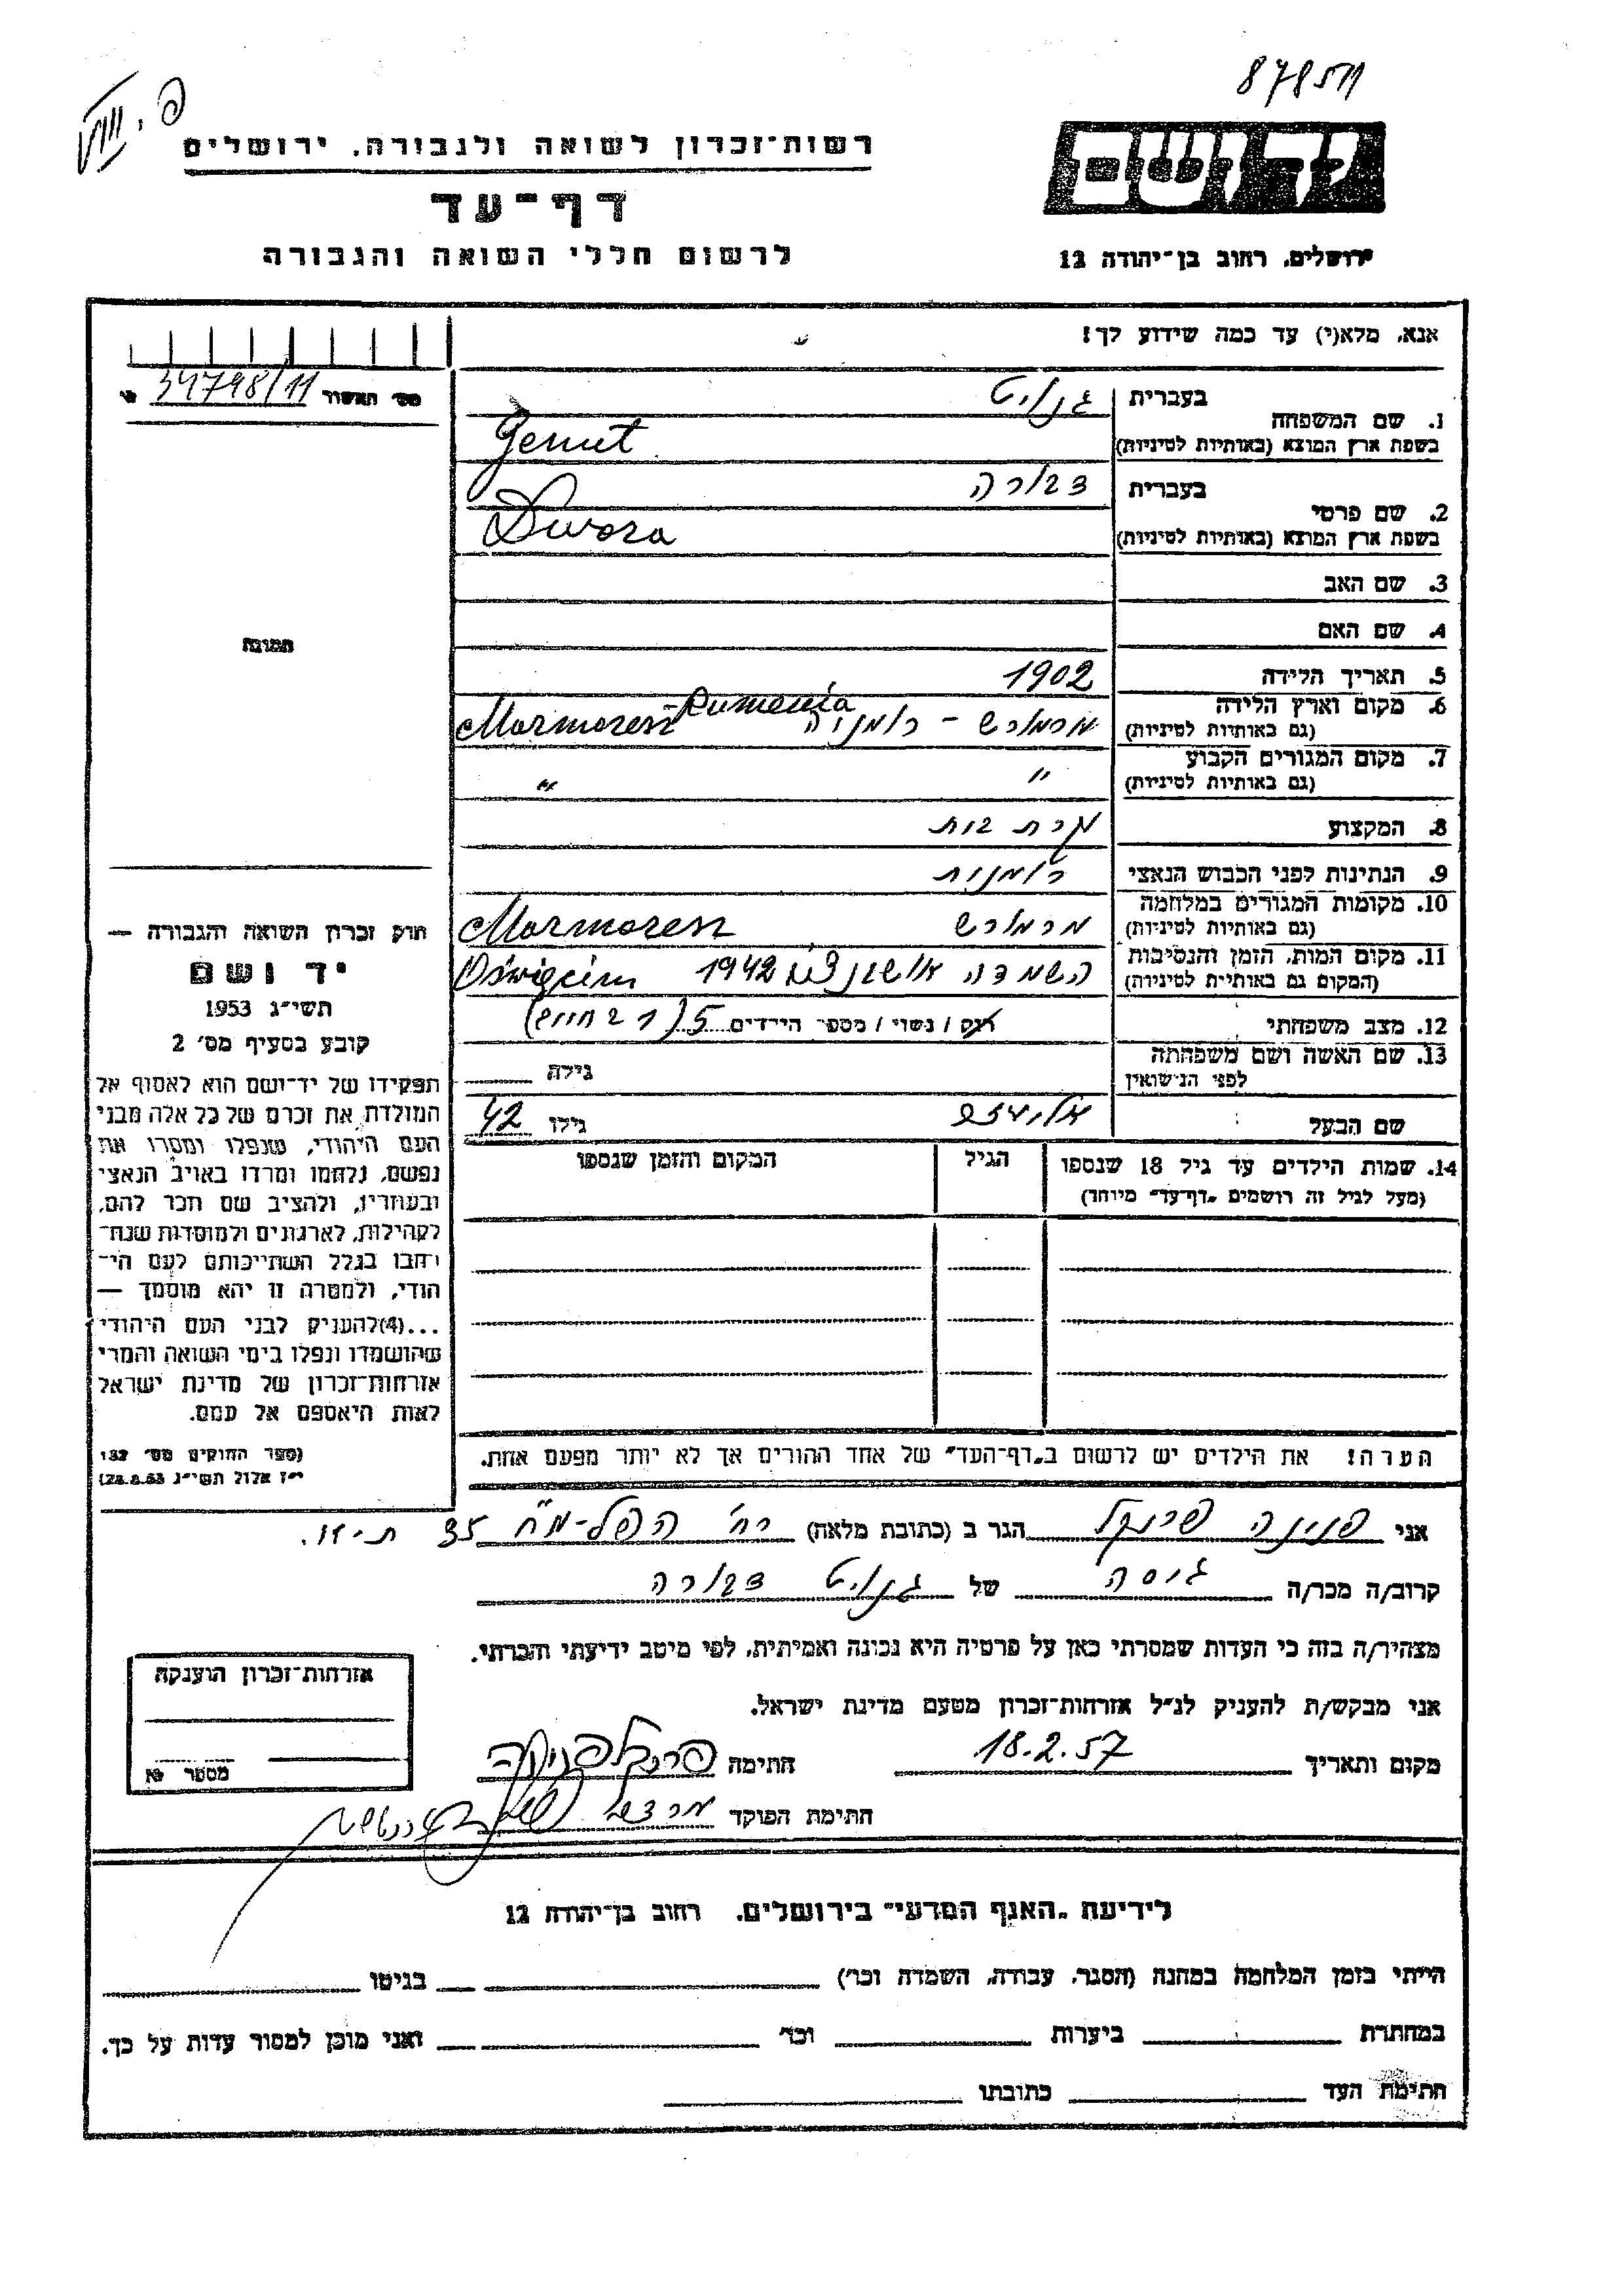 87851
רשות־זכרון לשואה ולגבורה, ירושלים
דף־עד
לרשום חללי השואה והגבורה
יד ושם
ירושלים, רחוב בן־יהודה 12
אנא, מלא(י) עד כמה שידוע לך!
מס׳ האשור 34798/11
1. שם המשפחה
בעברית
בשפת ארץ המוצא (באותיות לטיניות) Gemut
2. שם פרטי
בעברית דבורה
בשפת ארץ המוצא (באותיות לטיניות) Dwora
3. שם האב
4. שם האם
5. תאריך הלידה 1902
6. מקום וארץ הלידה
(גם באותיות לטיניות) מרמורש - רומניה Marmoresz - Rumenia
7. מקום המגורים הקבוע
(גם באותיות לטיניות) " "
8. המקצוע עקרת בית
9. הנתינות לפני הכבוש הנאצי רומנית
10. מקומות המגורים במלחמה
(גם באותיות לטיניות) מרמורש Marmoresz
11. מקום המות, הזמן והנסיבות
(המקום גם באותיות לטיניות) השמדה 1942 Oświęcim
12. מצב משפחתי רווק / נשוי / מספר הילדים 5
13. שם האשה ושם משפחתה
לפני הנישואין גילה
שם הבעל אליעזר גילו 42
14. שמות הילדים עד גיל 18 שנספו
(מעל לגיל זה רושמים „דף־עד" מיוחד)
הגיל
המקום והזמן שנספו
הערה! את הילדים יש לרשום ב„דף־העד" של אחד ההורים אך לא יותר מפעם אחת.
תמונה
חוק זכרון השואה והגבורה —
יד ושם
תשי״ג 1953
קובע בסעיף מס׳ 2
תפקידו של יד־ושם הוא לאסוף אל
המולדת את זכרם של כל אלה מבני
העם היהודי, שנפלו ומסרו את
נפשם, נלחמו ומרדו באויב הנאצי
ובעוזריו, ולהציב שם וזכר להם,
לקהילות, לארגונים ולמוסדות שנח־
רבו בגלל השתייכותם לעם הי־
הודי, ולמטרה זו יהא מוסמך —
...(4)להעניק לבני העם היהודי
שהושמדו ונפלו בימי השואה והמרי
אזרחות־זכרון של מדינת ישראל
לאות היאספם אל עמם.
(ספר החוקים מס׳ 132
י״ז אלול תשי״ג 28.8.53)
אני פנינה פרנקל הגר ב (כתובת מלאה) רח׳ הפל-מ״ח 35 ת-א.
קרוב/ה מכר/ה גיסה של דבורה
מצהיר/ה בזה כי העדות שמסרתי כאן על פרטיה היא נכונה ואמיתית, לפי מיטב ידיעתי והכרתי.
אני מבקש/ת להעניק לנ״ל אזרחות־זכרון מטעם מדינת ישראל.
מקום ותאריך 18.2.57 חתימה פרנקל פנינה
חתימת הפוקד
אזרחות־זכרון הוענקה
מספר
לידיעת „האגף המדעי" בירושלים, רחוב בן־יהודה 12
הייתי בזמן המלחמה במחנה (הסגר, עבודה, השמדה וכו׳) בגיטו
במחתרת ביערות וכו׳ ואני מוכן למסור עדות על כך.
חתימת העד כתובתו